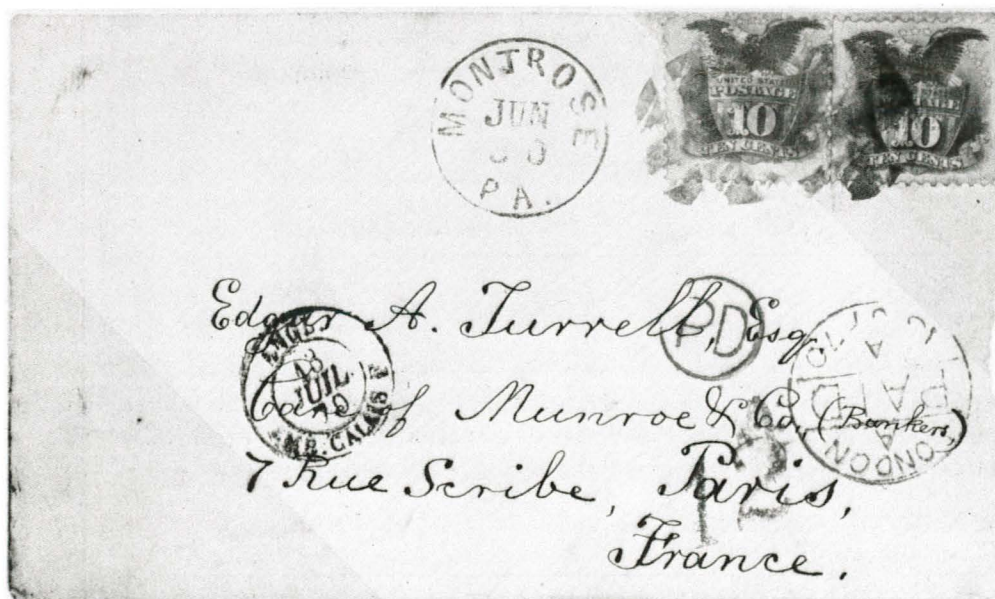 MONTROSE
JUN
PA.
UNITED STATES
POSTAGE
10
TEN CENTS
POSTAGE
10
TEN CENTS
Edgar A. Turrell, Esq.
PD
ANGL.
13
JUIL
AMB. CALAIS
LONDON
PAID
Care of Munroe & Co., (Bankers,)
7 Rue Scribe, Paris,
France.